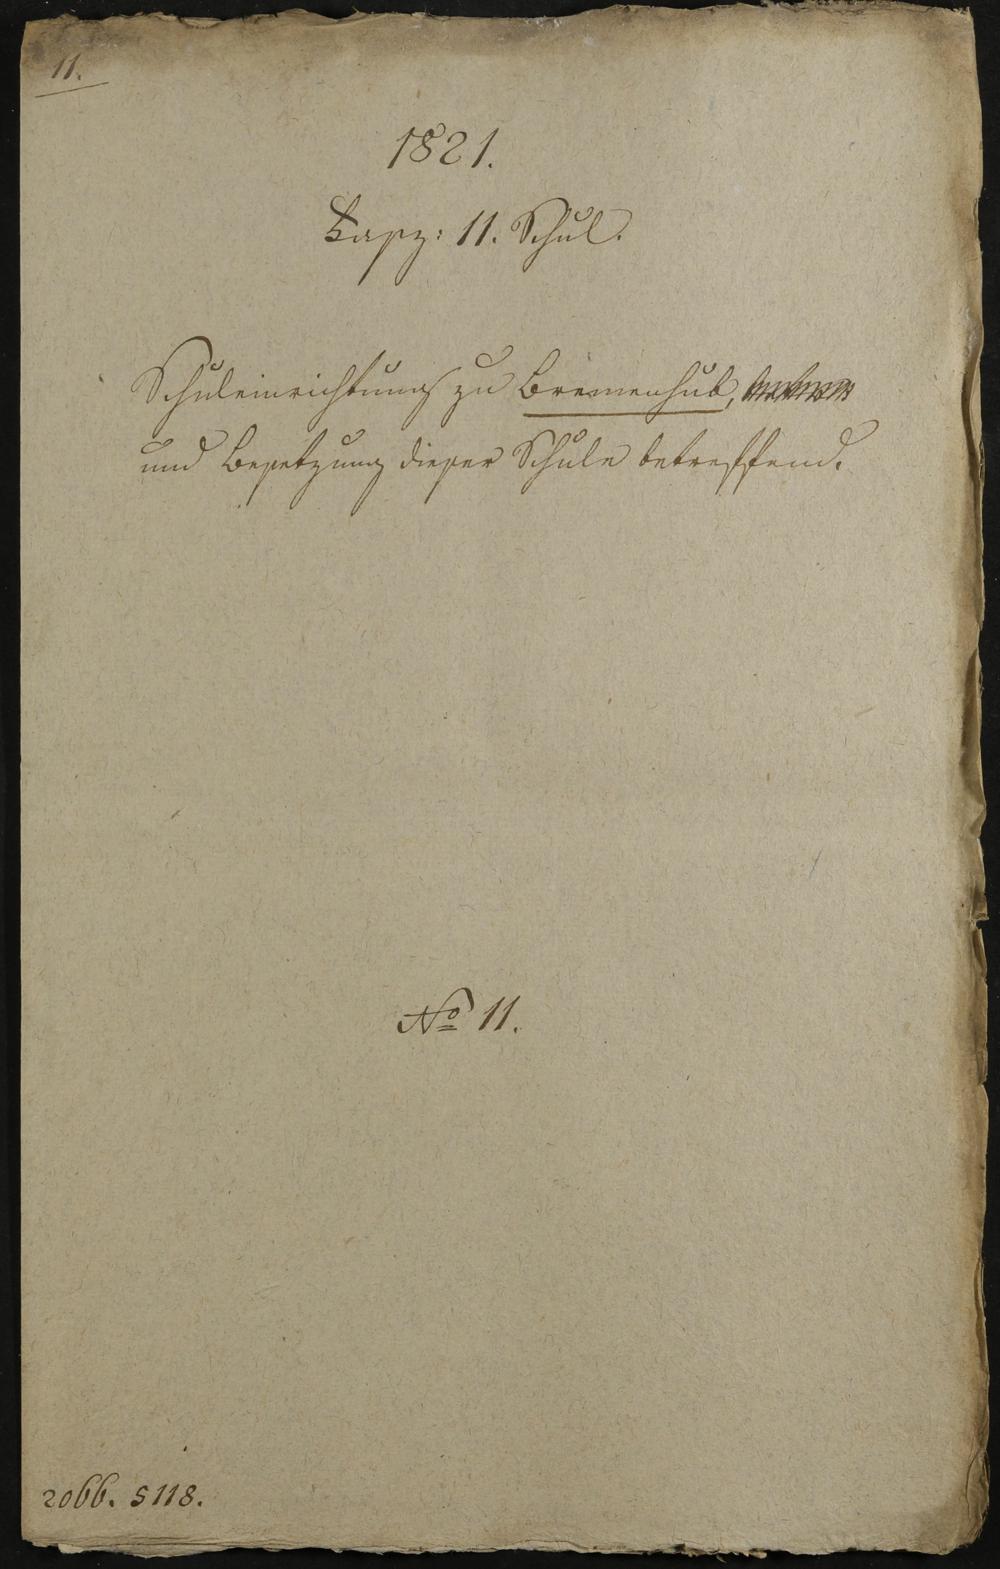 11.
1821.
Fasz: 11. Schul.
Schuleinrichtung zu Bremenhub,
und Besetzung dieser Schule betreffend.
No 11.
2066. S 118.